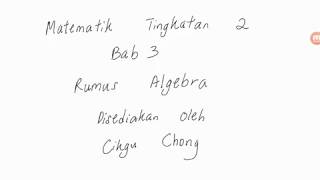 Matematik Tingkatan 2
Bab 3
Rumus Algebra
Disediakan oleh
Cikgu Chong